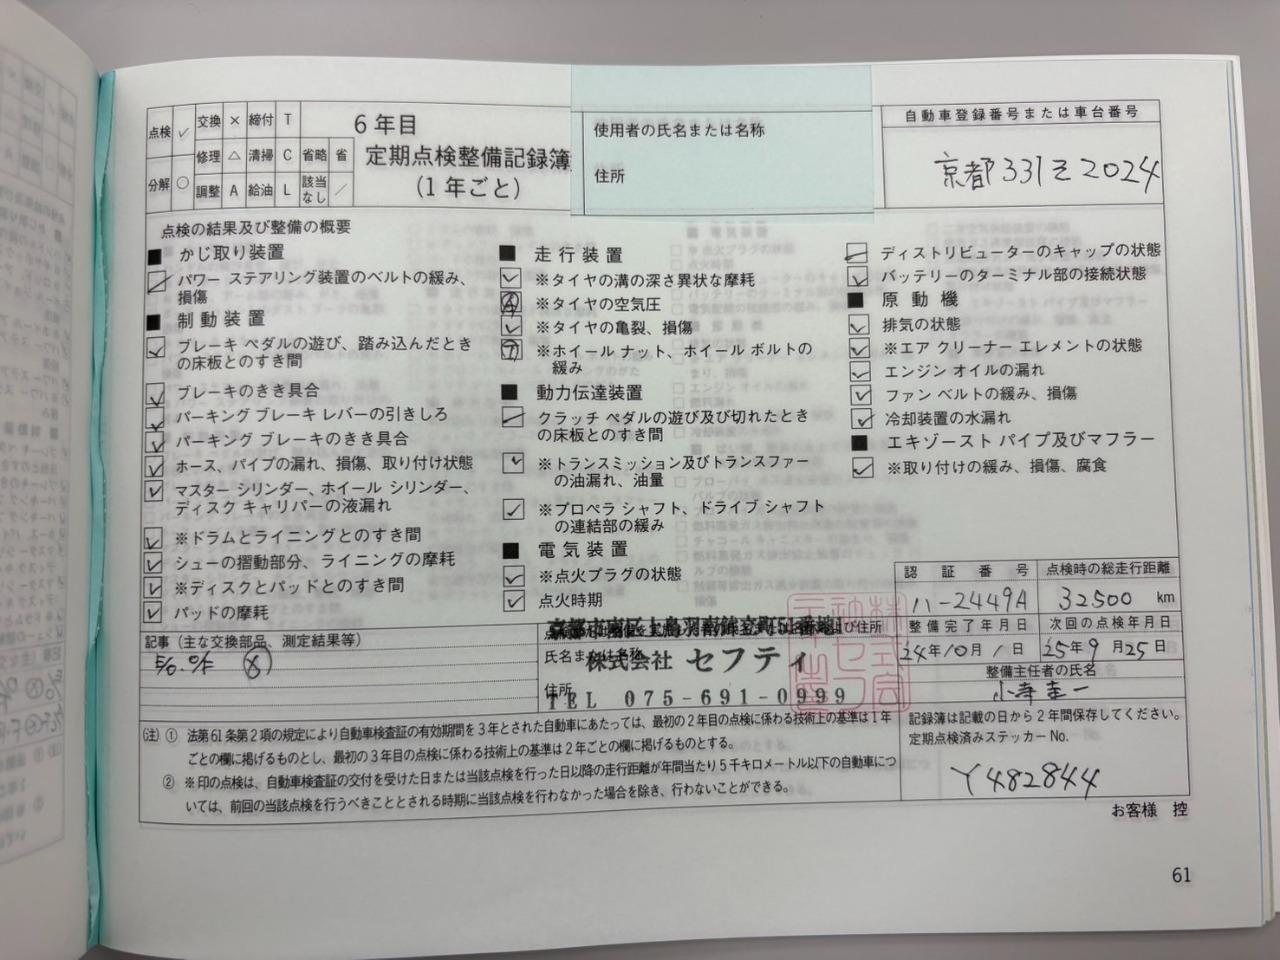 点検 ✓ 交換 × 締付 T
修理 △ 清掃 C 省略 省
分解 ○ 調整 A 給油 L 該当なし ／
6年目
定期点検整備記録簿
(1年ごと)
使用者の氏名または名称
住所
自動車登録番号または車台番号
京都331 2024
点検の結果及び整備の概要
■ かじ取り装置
パワー ステアリング装置のベルトの緩み、
損傷
■ 制動装置
ブレーキ ペダルの遊び、踏み込んだとき
の床板とのすき間
ブレーキのきき具合
パーキング ブレーキ レバーの引きしろ
パーキング ブレーキのきき具合
ホース、パイプの漏れ、損傷、取り付け状態
マスター シリンダー、ホイール シリンダー、
ディスク キャリパーの液漏れ
※ドラムとライニングとのすき間
シューの摺動部分、ライニングの摩耗
※ディスクとパッドとのすき間
パッドの摩耗
■ 走行装置
※タイヤの溝の深さ異状な摩耗
※タイヤの空気圧
※タイヤの亀裂、損傷
※ホイール ナット、ホイール ボルトの
緩み
■ 動力伝達装置
クラッチ ペダルの遊び及び切れたとき
の床板とのすき間
※トランスミッション及びトランスファー
の油漏れ、油量
※プロペラ シャフト、ドライブ シャフト
の連結部の緩み
■ 電気装置
※点火プラグの状態
点火時期
ディストリビューターのキャップの状態
バッテリーのターミナル部の接続状態
■ 原動機
排気の状態
※エア クリーナー エレメントの状態
エンジン オイルの漏れ
ファン ベルトの緩み、損傷
冷却装置の水漏れ
■ エキゾースト パイプ及びマフラー
※取り付けの緩み、損傷、腐食
記事（主な交換部品、測定結果等）
氏名または名称
株式会社 セフティ
住所
TEL 075-691-0999
認証番号
ハ-2449A
点検時の総走行距離
32500 km
整備完了年月日
24年10月1日
次回の点検年月日
25年9月25日
整備主任者の氏名
(注) ① 法第61条第2項の規定により自動車検査証の有効期間を3年とされた自動車にあたっては、最初の2年目の点検に係わる技術上の基準は1年
ごとの欄に掲げるものとし、最初の3年目の点検に係わる技術上の基準は2年ごとの欄に掲げるものとする。
② ※印の点検は、自動車検査証の交付を受けた日または当該点検を行った日以降の走行距離が年間当たり5千キロメートル以下の自動車につ
いては、前回の当該点検を行うべきこととされる時期に当該点検を行わなかった場合を除き、行わないことができる。
記録簿は記載の日から2年間保存してください。
定期点検済みステッカーNo.
Y482844
お客様 控
61